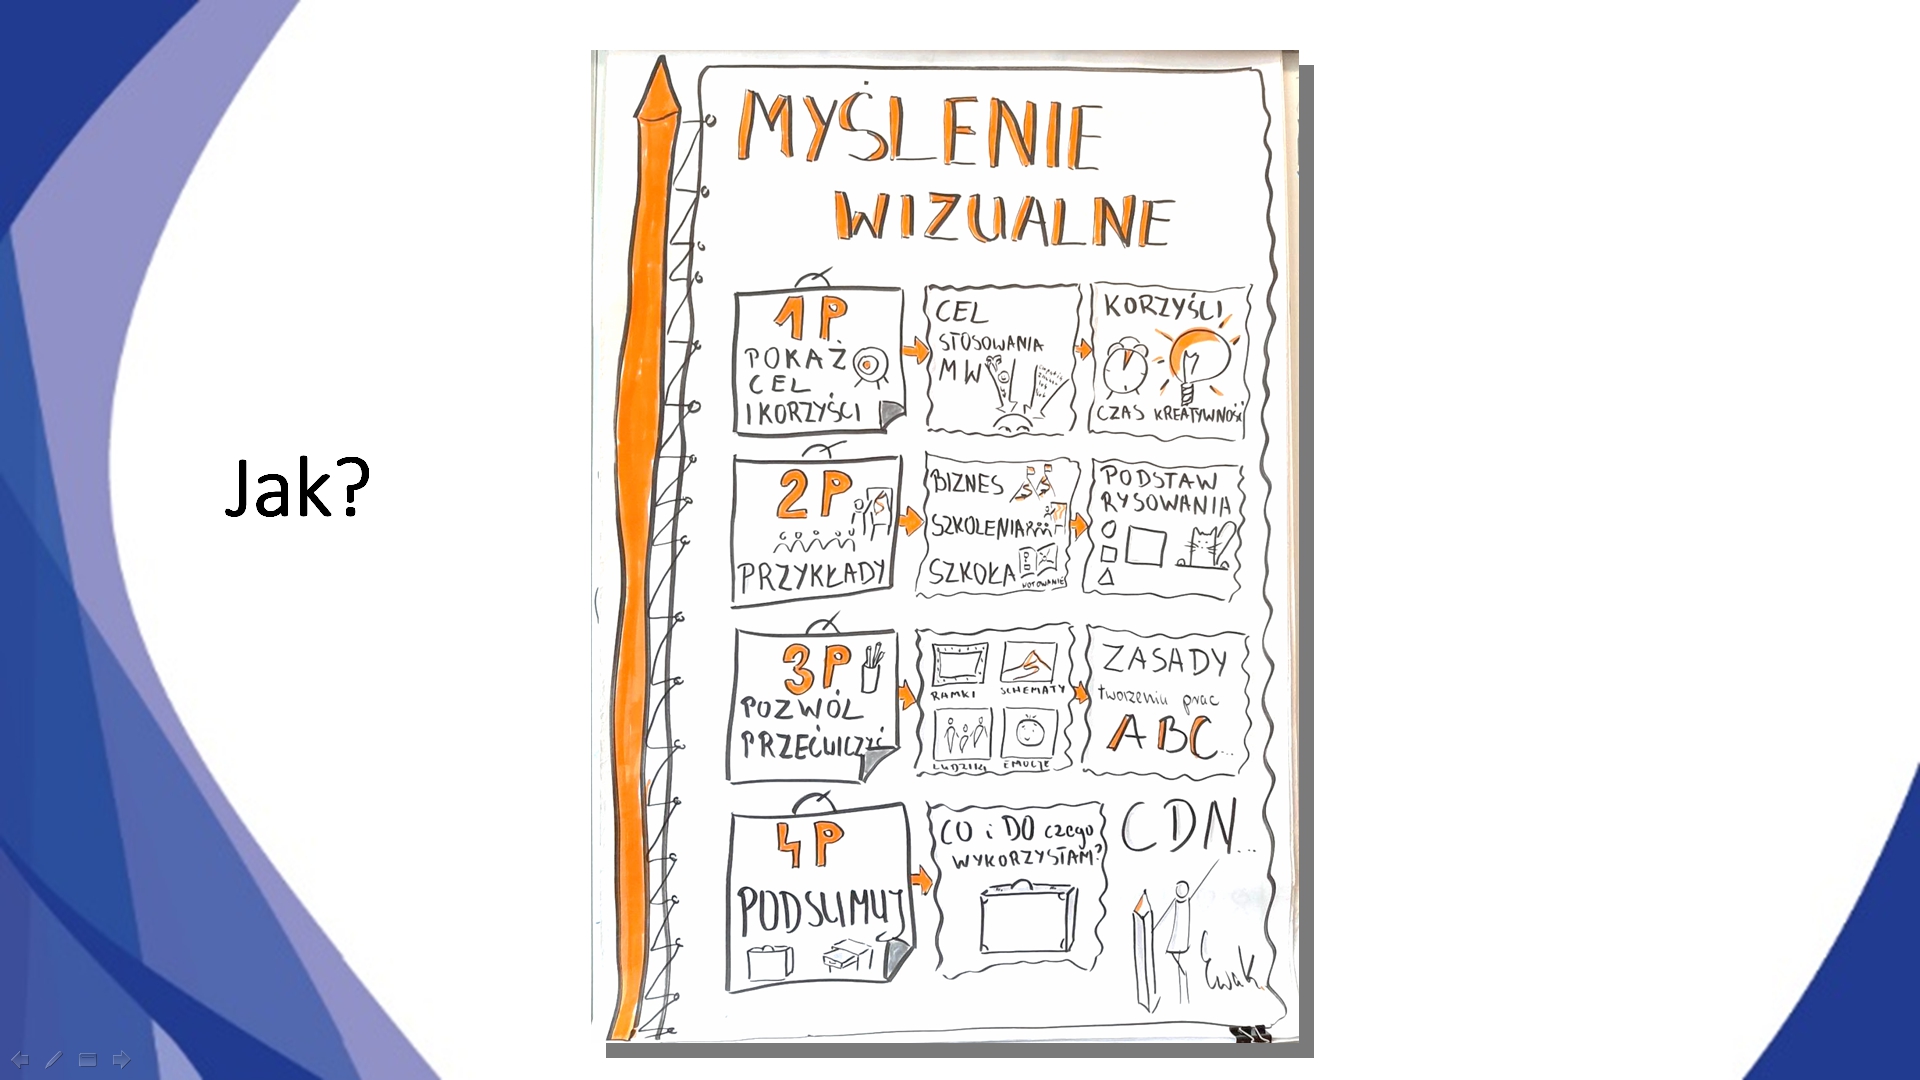 Jak?
MYŚLENIE
WIZUALNE
1P
POKAŻ
CEL
I KORZYŚCI
CEL
STOSOWANIA
MW
KORZYŚCI
CZAS KREATYWNOŚĆ
2P
PRZYKŁADY
BIZNES
SZKOLENIA
SZKOŁA
NOTOWANIE
PODSTAW
RYSOWANIA
3P
POZWÓL
PRZEĆWICZYĆ
RAMKI SCHEMATY
LUDZIKI EMOCJE
ZASADY
tworzenia prac
ABC...
4P
PODSUMUJ
CO i DO czego
WYKORZYSTAM?
CDN...
EwaK.